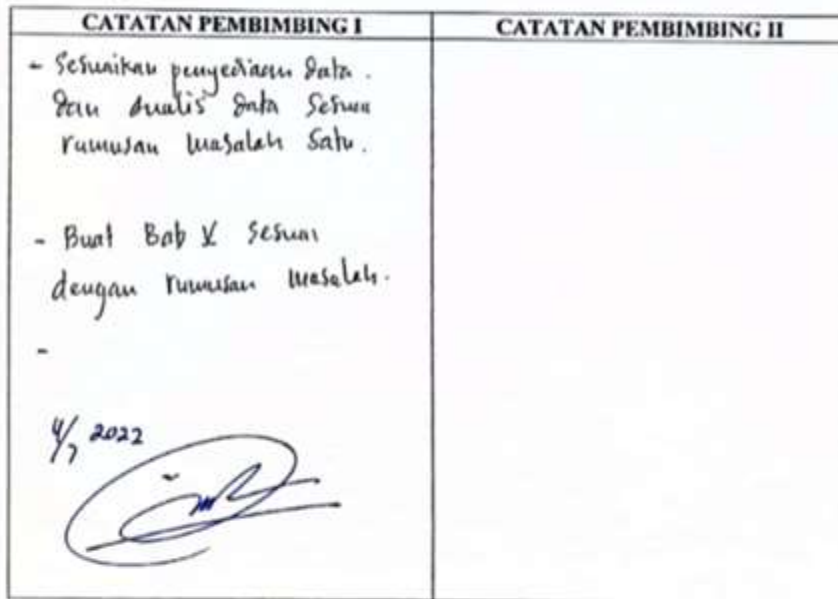 CATATAN PEMBIMBING I
CATATAN PEMBIMBING II
- Sesuaikan penyediaan data.
dan analis data sesuai
rumusan masalah satu.
- Buat Bab V sesuai
dengan rumusan masalah.
-
4/7 2022